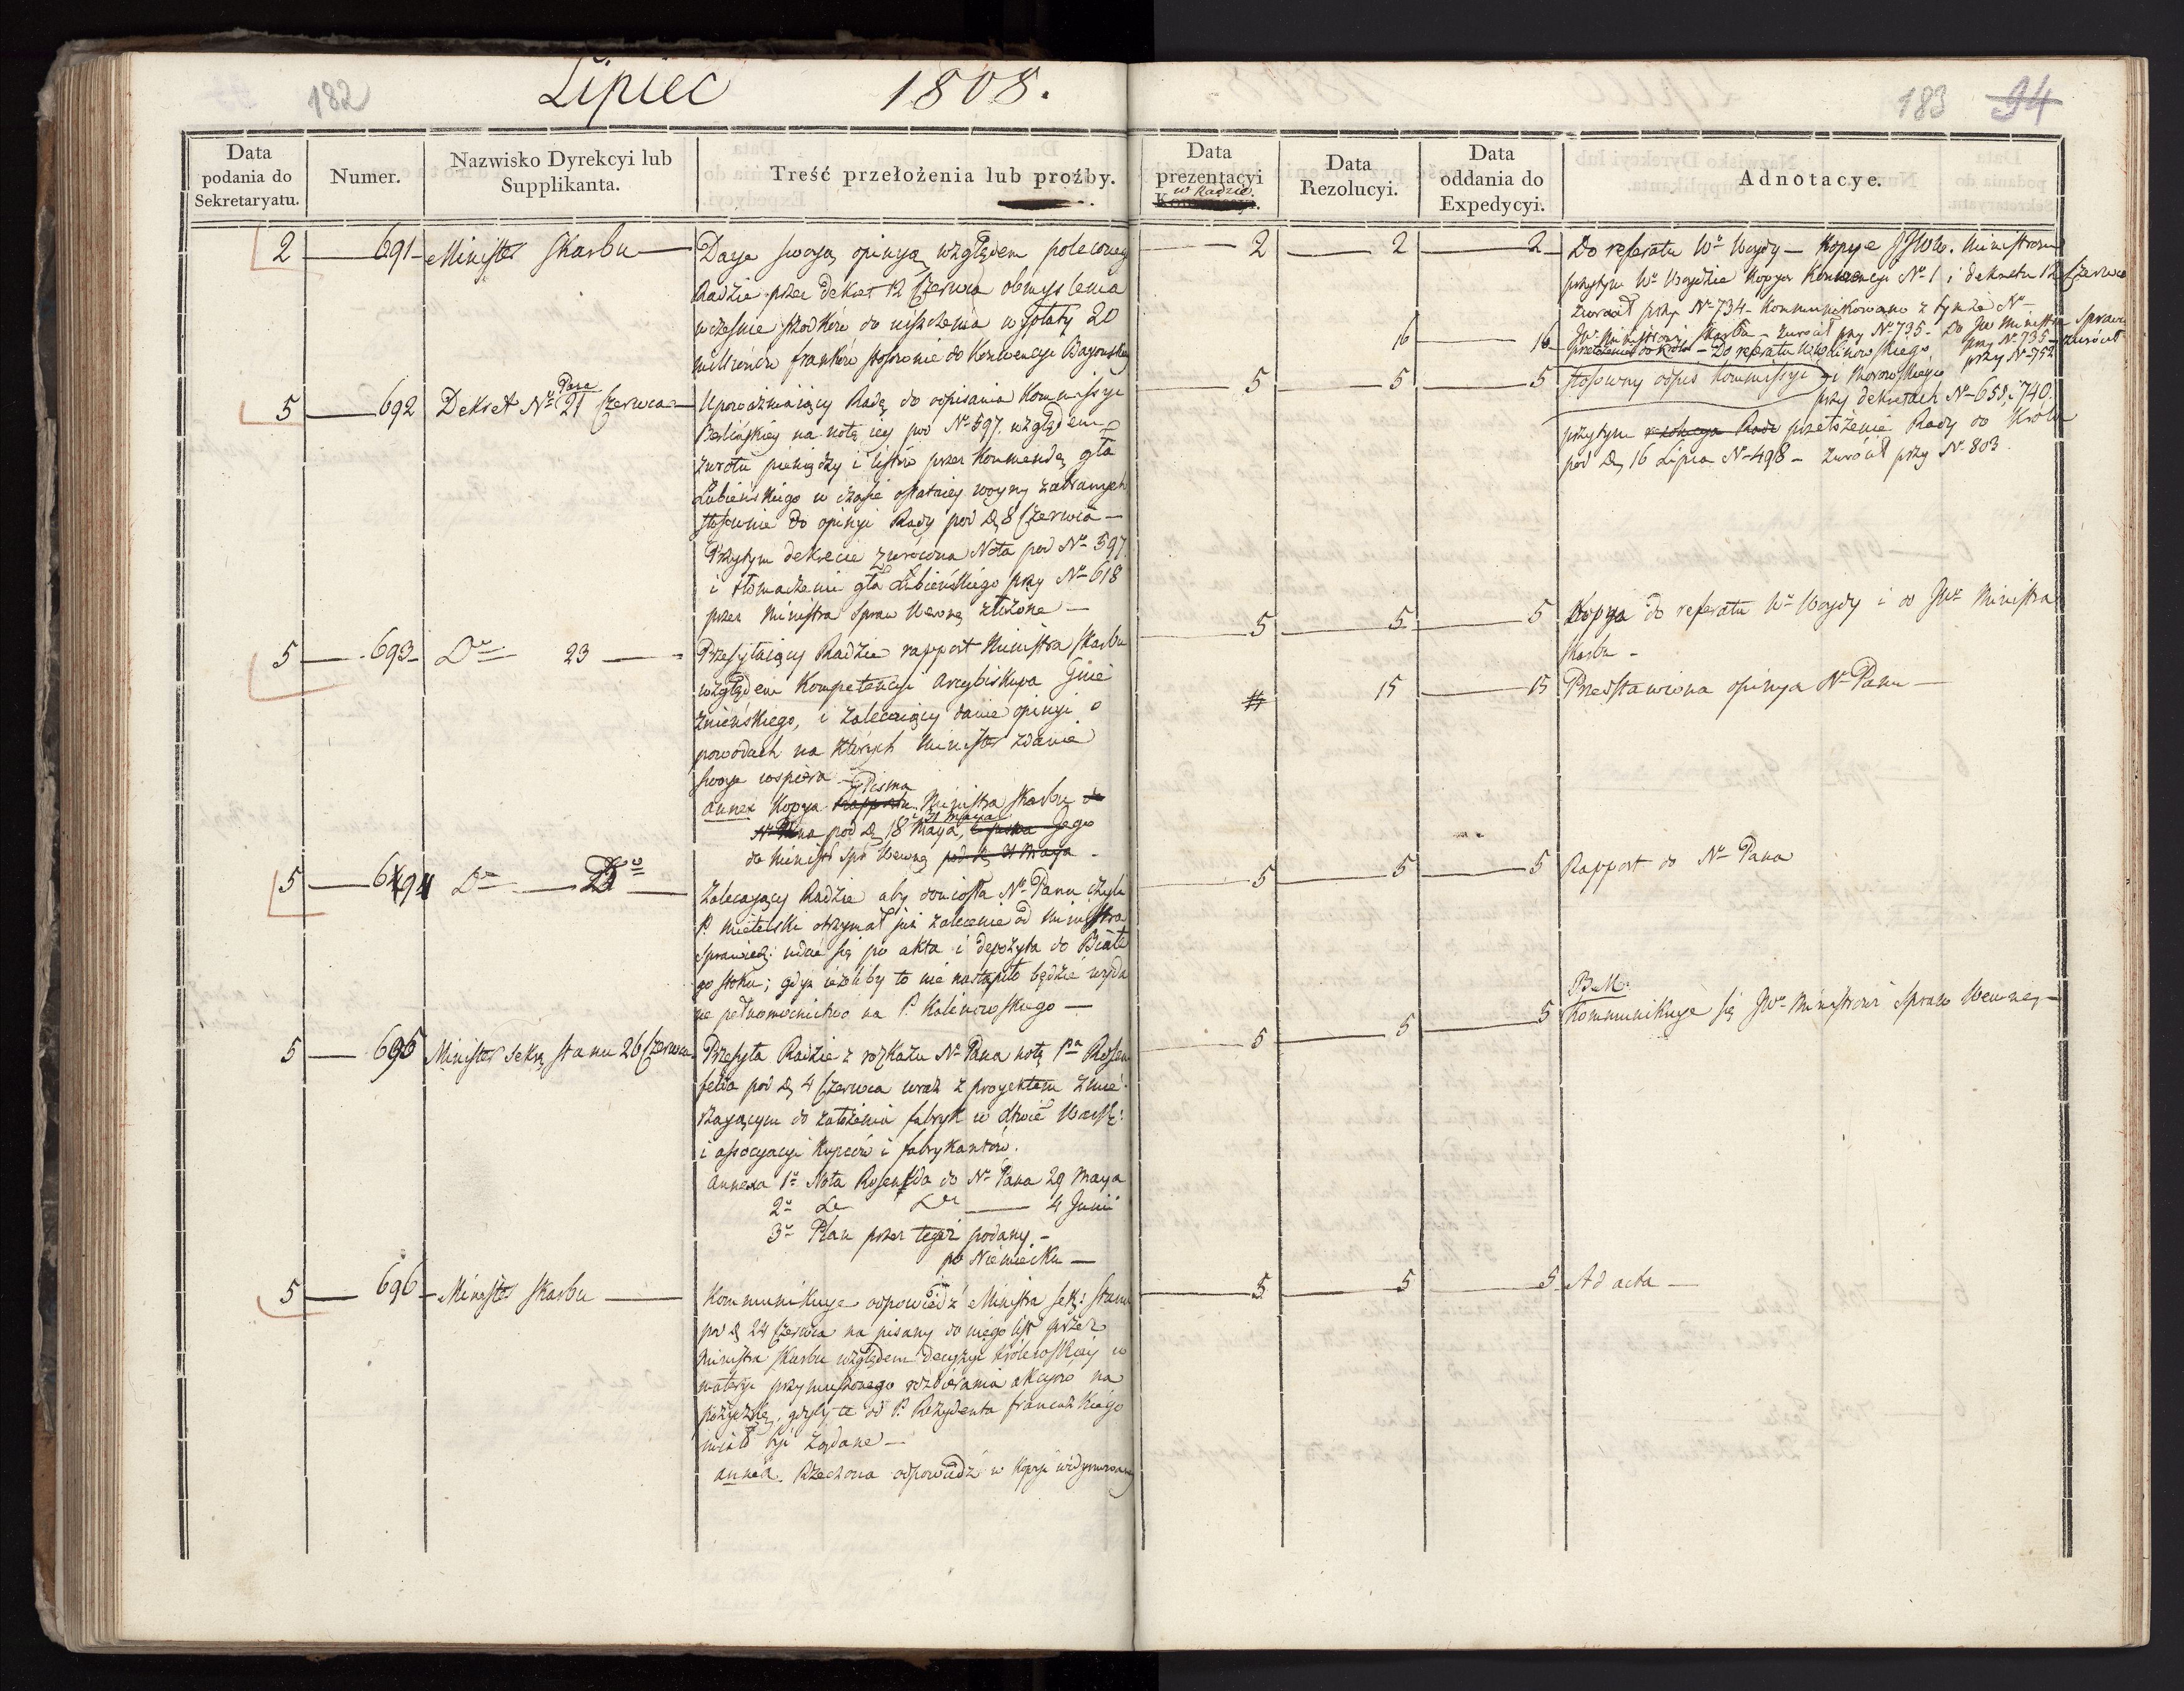 182
Lipiec 1808.
183 94
Data podania do Sekretaryatu.
Numer.
Nazwisko Dyrekcyi lub Supplikanta.
Treść przełożenia lub proźby.
Data prezentacyi w Radzie
Data Rezolucyi.
Data oddania do Expedycyi.
Adnotacye.
2 — 691 — Minister Skarbu —
Daje swoją opinyą względem poleconey
Radzie przez dekret 12 Czerwca obmyslenia
wczesnie srzodków do uiszczenia wypłaty 20
millionów franków stosownie do Konwencyi Bayonskiey
2 — 2 — 2
Do referatu Wo Woydy — Kopije JJWW. Ministrom
przytym Wo Woydzie Kopya Konwencyi No 1 i dekretu 12 Czerwca
zwrócił przy No 734 — Kommunikowano z tymże No —
16 — 16
JW Ministrowi Skarbu — zwrócił przy No 735 — Do JW Ministra Spraw
przełożenie do Króla — Do referatu W Linowskiego
przy No 752
5 — 692 Dekret No Pana 21 Czerwca —
Upoważniaiący Radę do odpisania Kommissyi
Berlińskiey na notę iey pod No 597. względem
zwrotu pieniędzy i listów przez Kommendę gła
Łubieńskiego w czasie ostatniey woyny zabranych
stosownie do opinyi Rady pod D. 8 Czerwca —
Przytym dekrecie zwrócona Nota pod No 597
i tłomaczenie gła Łubieńskiego przy No 618
przez Ministra Spraw Wewnę złożone —
5 — 5 — 5
stosowny odpis Kommissyi
i Morawskiego
przy dekretach No 658, i 740.
przytym rezolucya Rady przełożenie Rady do Króla
pod D. 16 Lipca No 498 — zwrócił przy No 803
5 — 693 — Do 23 —
Przesyłaiący Radzie rapport Ministra Skarbu
względem Kompetencyi Arcybiskupa Gnie
znieńskiego, i zalecaiący danie opinyi o
powodach na których Minister zdanie
swoje wspiera —
Annex Kopya Rapportu Pisma Ministra Skarbu do
N. Pana pod D. 18 i 31 Maya Maya, Jego
do Ministr Spr Wewnę pod D. 31 Maya —
5 — 5 — 5
Kopya do referatu Wo Woydy i do JWo Ministra
Skarbu —
15 — 15
Przedstawiona opinya No Panu —
5 — 694 Do — Do —
Zalecaiący Radzie aby doniosła No Panu czyli
P. Mielecki otrzymał już zalecenie od Ministra
Sprawiedl: udać się po akta i depozyta do Białe
go stoku; gdyż jeżeliby to nie nastąpiło będzie wyda
ne pełnomocnictwo na P. Kalinowskiego —
5 — 5 — 5
Rapport do No Pana
5 — 695 Minister Sekrę Stanu 26 Czerwca
Przesyła Radzie z rozkazu No Pana notę Pa Rosen
felda pod D. 4 Czerwca wraz z proyektem zmie-
rzaiącym do założenia fabryk w Xtwie Warsz:
i assocyacyi Kupców i fabrykantów.
Annexa 1o Nota Rosenfelda do No Pana 29 Maya
2o Do Do — 4 Junii
3o Plan przez tegoż podany —
po Niemiecku —
5 — 5 — 5
B.M.
Kommunikuje się JWo Ministrowi Spraw Wewnęt —
5 — 696 — Minister Skarbu —
Kommunikuje odpowiedź Ministra Sekr: Stanu
pod D. 24 Czerwca na pisany do niego list przez
Ministra Skarbu względem decyzyi Królewskiey w
materyi przymuszonego rozbierania akcyów na
pożyczkę, gdyby te od P. Rezydenta francuzkiego
miało być żądane —
Annex. Rzeczona odpowiedź w Kopyi widymowaney
5 — 5 — 5 Ad acta —